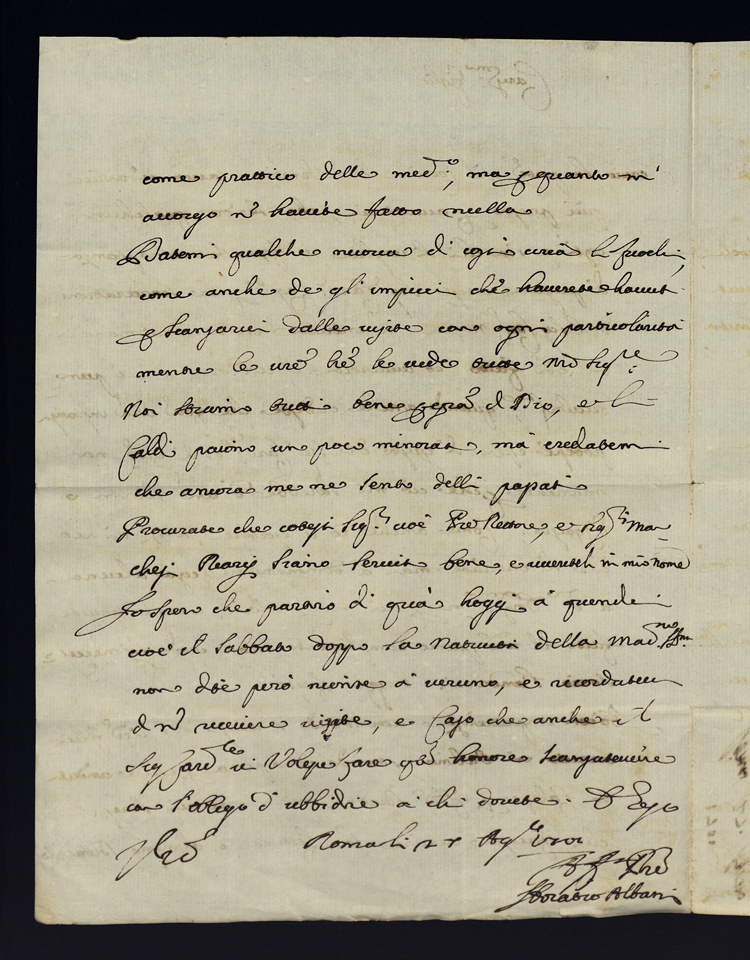 come prattico delle med.º; ma p quanto m'
accorgo nõ havete fatto nulla
Datemi qualche nuova di costi circa li fuochi,
come anche de gl'impicci che haverete havuti
p scansarvi dalle visite con ogni particolarità
mentre le vre̅ l're̅ le vede tutte Nrõ Sigre
Noi stiamo tutti bene p gra̅ di Dio, e li
Caldi paiono un poco minorati, mà credatemi
che ancora me ne sento delli papati
Procurate che cotesti Sigri cioè Pre̅ Rettore, e Sigri Mar
chesi Riarij siano serviti bene, e riveriteli in mio nome
Io spero che partirò di quà hoggi à quindici
cioè il Sabbato doppo la Natività della Madna Ssma
non dite però niente à veruno, e ricordatevi
di nõ ricevere visite, e Caso che anche il
Sig Card.le vi Volesse fare qsto honore scansatevene
con l'obligo d'ubbidire à chi dovete. E Dio
Roma li 27 Ag.to 1701
Aff.mo Pre̅
Horatio Albani